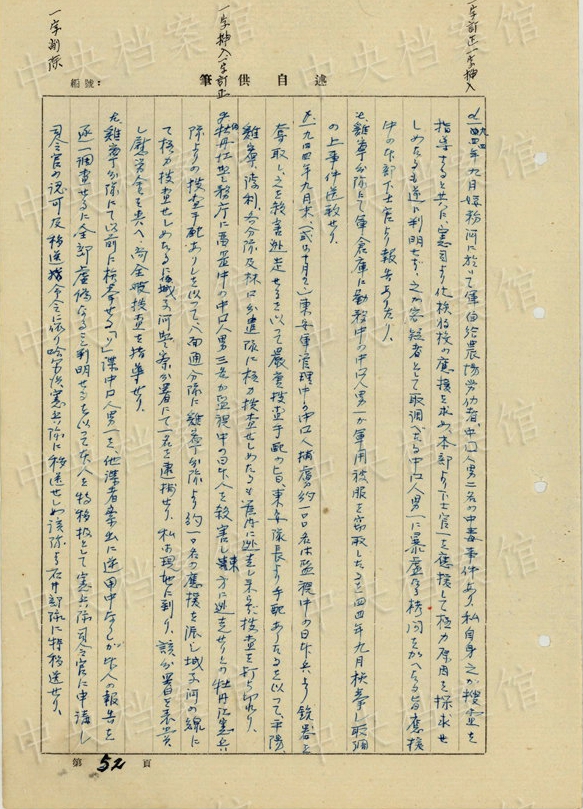 一字訂正一字挿入
一字挿入一字訂正
一字削除
編號:
述自供筆
d、一九四四年九月、於いて軍自給農場労働者、中国人男二名の中毒事件あり、私自身之が捜査を
指導すると共に、憲司より化検佐校の應援を求め、本部より下士官一を應援して極力原因を探求せ
しめたるも遂に判明せず、之が容疑者として取調べたる中国人男一に暴虐なる拷問を加へたる旨應援
中の本部下士官より報告ありたり。
e、雞寧分隊にて軍倉庫に勤務中の中国人男一が軍用被服を窃取したるを一九四四年九月検挙し取調
の上事件送致せり。
f、一九四四年九月末、(或は十月か)東安軍管理中の中国人捕虜約一〇〇名は監視中の日本兵より銃器を
奪取し、之を殺害逃走せるを以て厳重捜査手配の旨、東安隊長より手配ありたるを以て平陽、
雞寧、勃利、各分隊及林口分遣隊に極力捜査せしめたるも管内に逃走し来らず、捜査を打ち切れり。
g、牡丹江監務庁に留置中の中国人男三名が監視中の日本人を殺害し東方に逃走せりとの牡丹江憲兵
隊よりの捜査手配ありしを以て八面通分隊に雞寧分隊より約一〇名の應援を派し城子河の線に
て極力捜査せしめたるに城子河警察分署にて一名を逮捕せり。私は現地に到り、該分署を表賞
し慰労金を與へ、尚全般捜査を指導せり。
h、雞寧分隊にて以前に検挙せる「ソ」諜中国人男一を他諜者索出に逆用中なりしが本人の報告を
逐一調査せるに全部虚偽なること判明せるを以て本人を特移扱として憲兵隊司令官に申請し
司令官の認可及移送指令に依り哈爾浜憲兵隊に移送せしめ該隊より石井部隊に特移送せり。
第 52 頁
中央档案馆